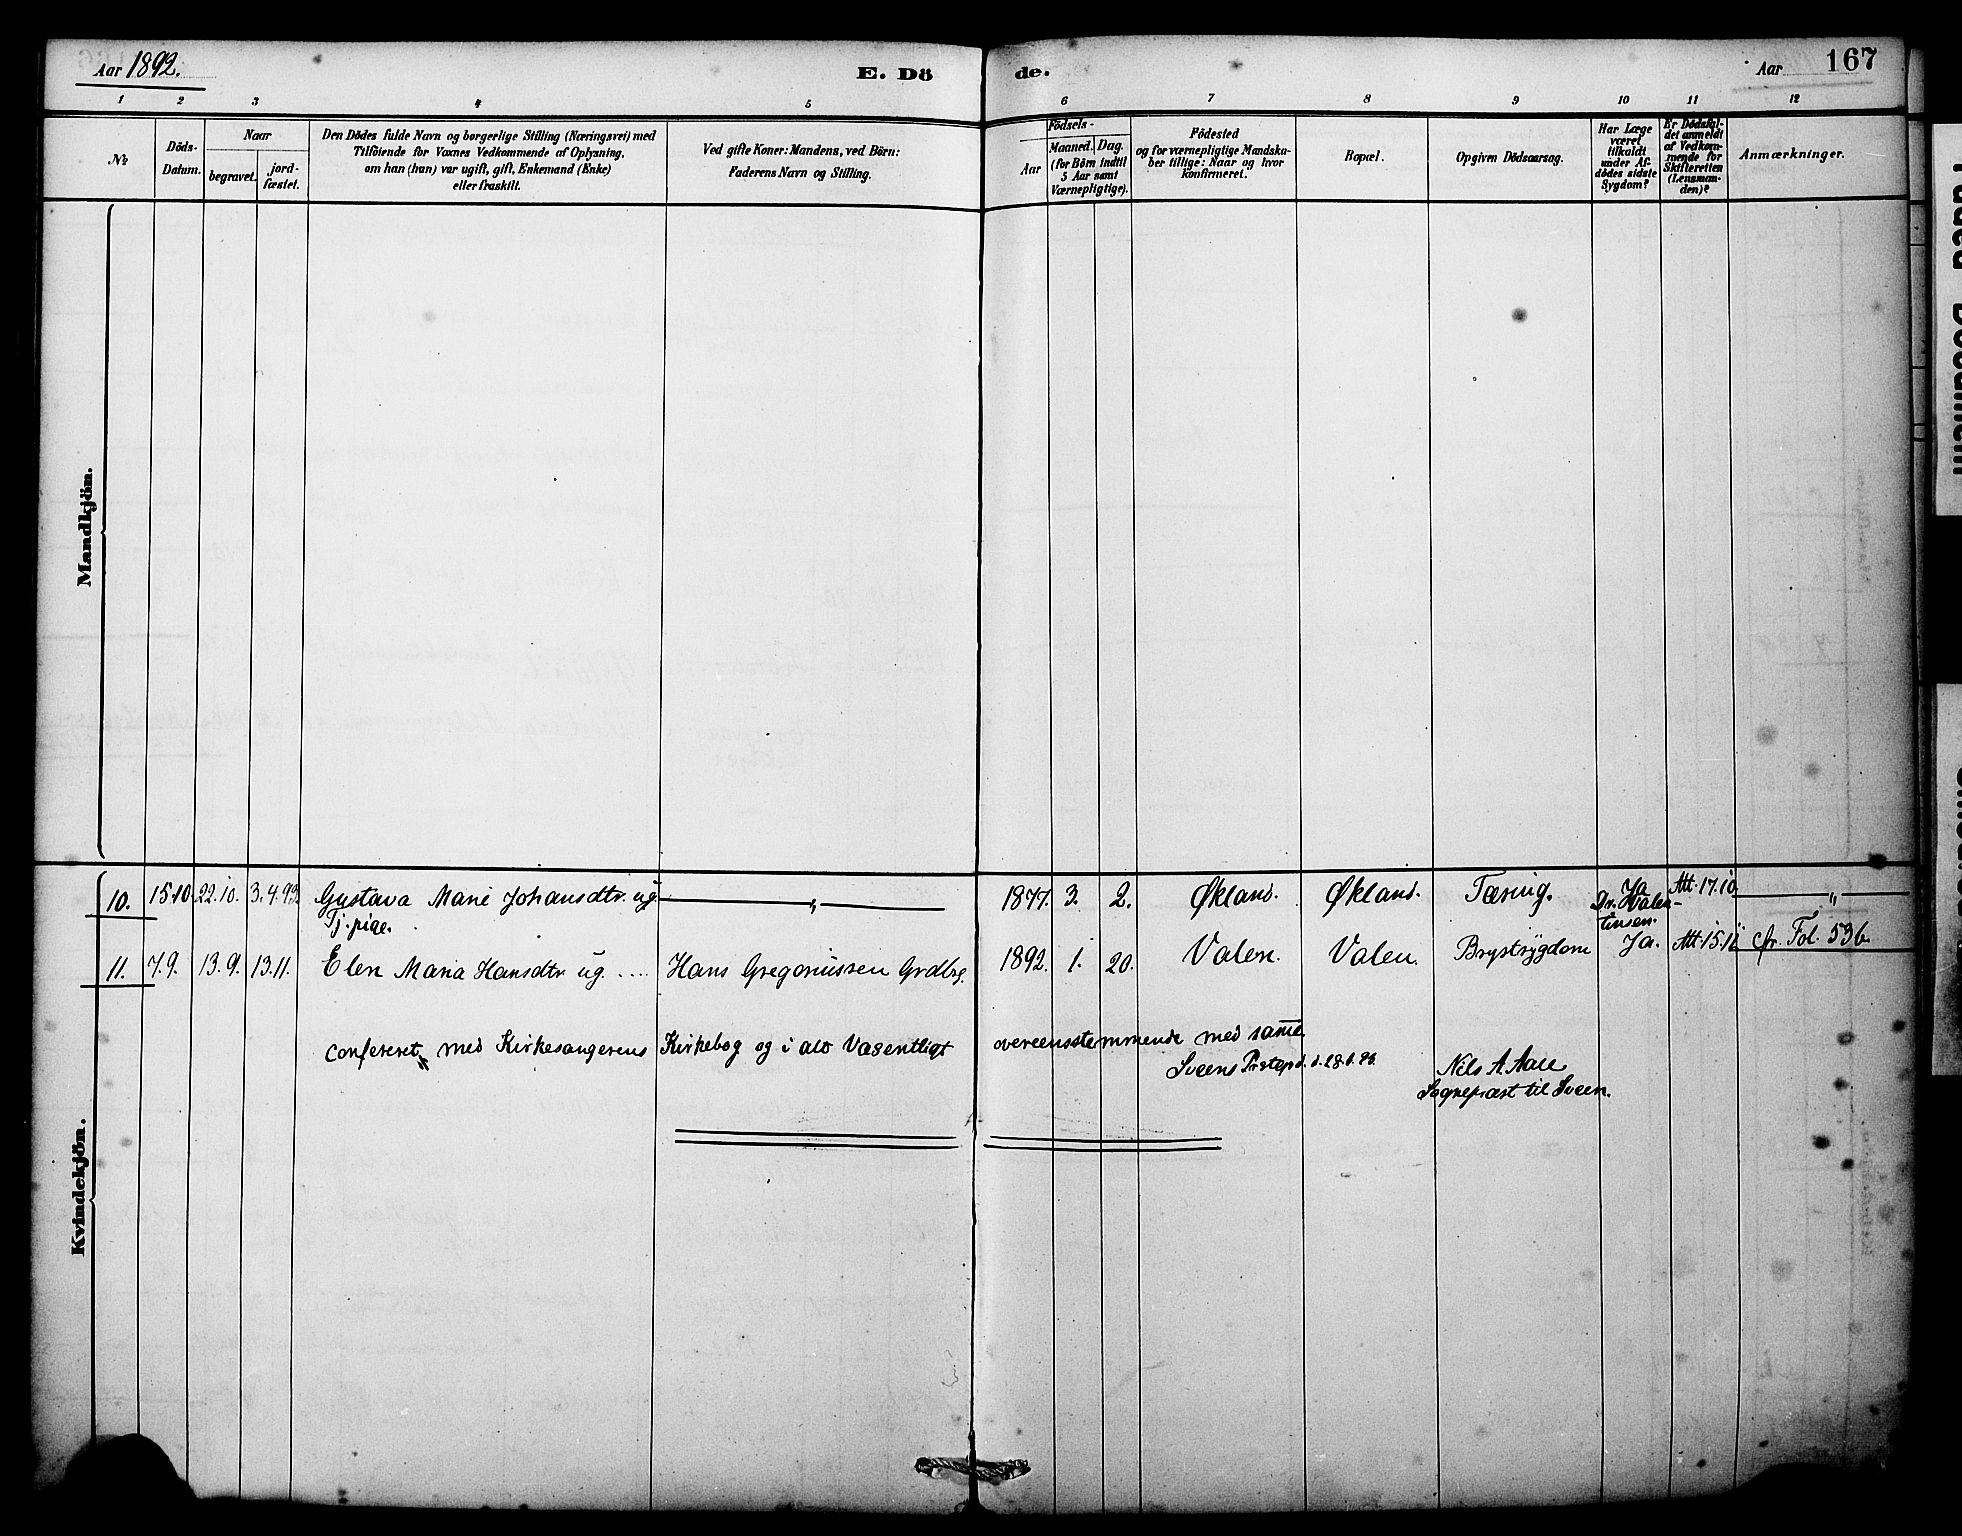 Aar 1892.
E. Dö
de.
Aar
167
1 2 3 4 5 6 7 8 9 10 11 12
No
Döds-
Datum.
Naar
begravet.
jord-
fæstet.
Den Dödes fulde Navn og borgerlige Stilling (Næringsvei) med
Tilföiende for Voxnes Vedkommende af Oplysning,
om han (hun) var ugift, gift, Enkemand (Enke)
eller fraskilt.
Ved gifte Koner: Mandens, ved Börn:
Faderens Navn og Stilling.
Födsels-
Aar
Maaned.
Dag.
(for Börn indtil
5 Aar samt
Værnepligtige).
Födested
og for værnepligtige Mandska-
ber tillige: Naar og hvor
konfirmeret.
Bopæl.
Opgiven Dödsaarsag.
Har Læge
været
tilkaldt
under Af-
dödes sidste
Sygdom?
Er Dödsfal-
det anmeldt
af Vedkom-
mende for
Skifteretten
(Lensman-
den)?
Anmærkninger.
Mandkjön.
Kvindekjön.
10. 15.10. 22.10. 3.4.93 Gustava Marie Johansdtr. ug. — „ — 1877. 3. 2. Økland. Økland. Tæring. Ja Att. 17.10. — „ —
Tj.pige.
Dr. Valen-
tinsen.
11. 7.9. 13.9. 13.11. Elen Maria Hansdtr. ug .... Hans Gregoriussen Grdbr. 1892. 1. 20. Valen. Valen. Brystsygdom Ja. Att. 15.12 cfr. Fol. 53 b.
Confereret med Kirkesangerens Kirkebog og i alt Væsentligt overeensstemmende med samme.
Sveens Prstegd. d.
Nils A. Aall
Sognepræst til Sveen.